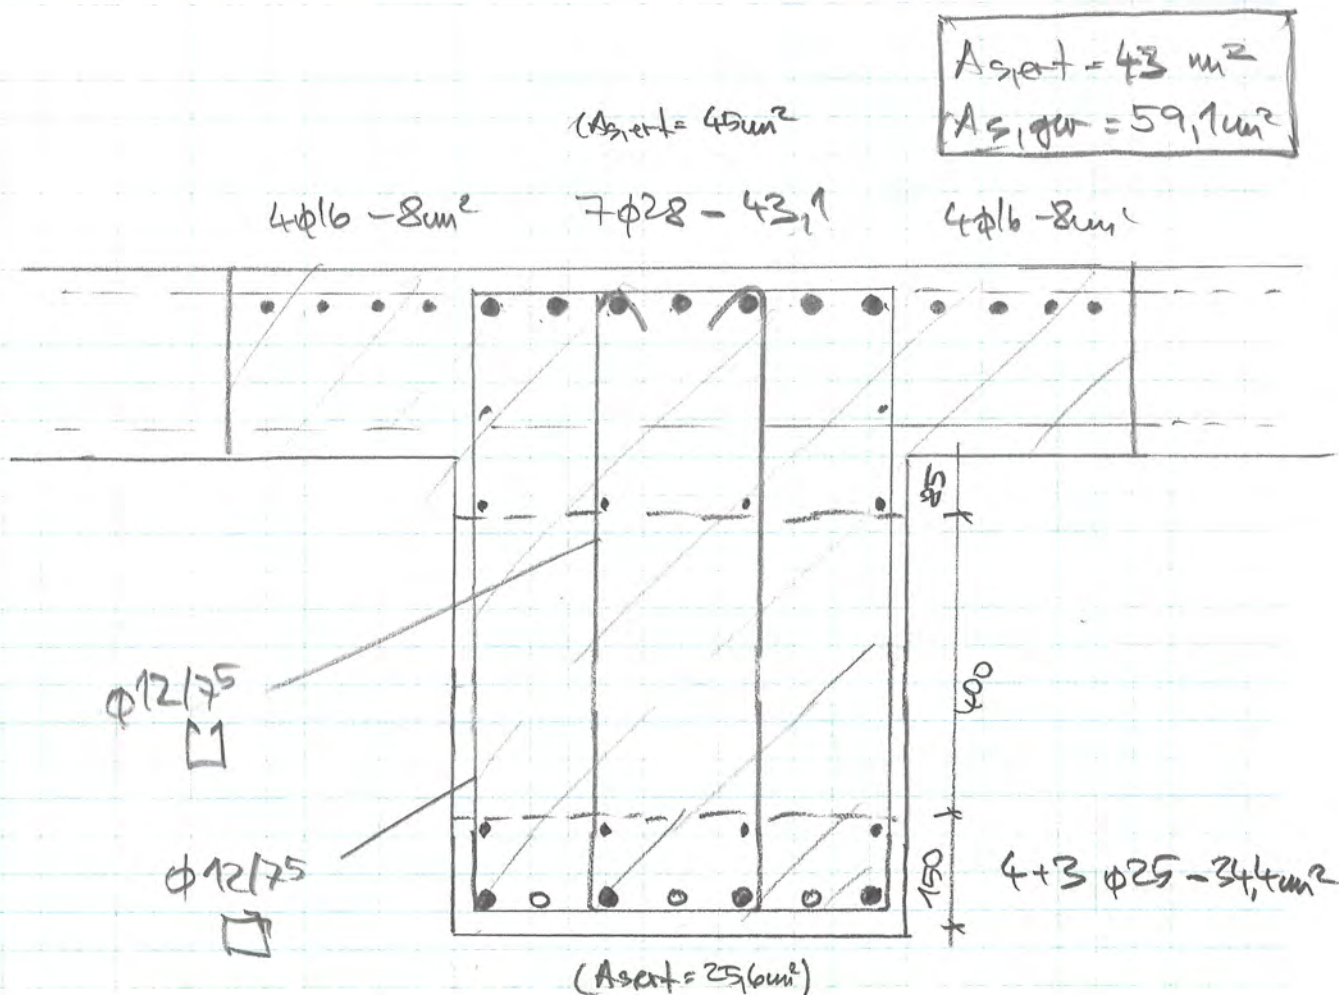 As,erf = 43 cm²
As,gew = 59,1cm²
(As,erf = 45cm²
4ϕ16 - 8cm²
7ϕ28 - 43,1
4ϕ16 - 8cm²
400
ϕ12/7⁵
ϕ12/7⁵
150
4+3 ϕ25 - 34,4cm²
(As,erf = 25,6cm²)